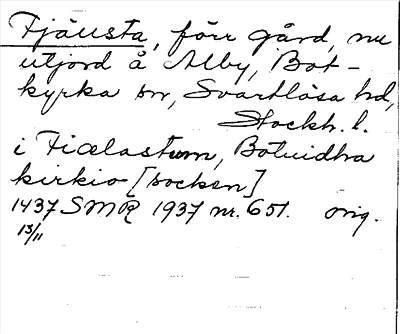 Fjällsta, förr gård, nu
utjord å Alby, Bot-
kyrka sn, Svartlösa hd,
Stockh. l.
i Fiælastum, Botuidha
kirkio [socken]
1437 SMR 1937 nr. 651. orig.
13/11